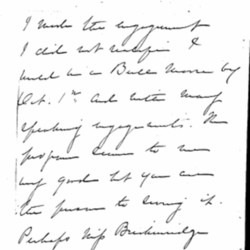 I made the engagement
I did not realize I
would be in a Bull Moose by
Oct. 1st and with many
speaking engagements. The
program seems to me
very good but you are
the person to swing it.
Perhaps Miss Breckinridge